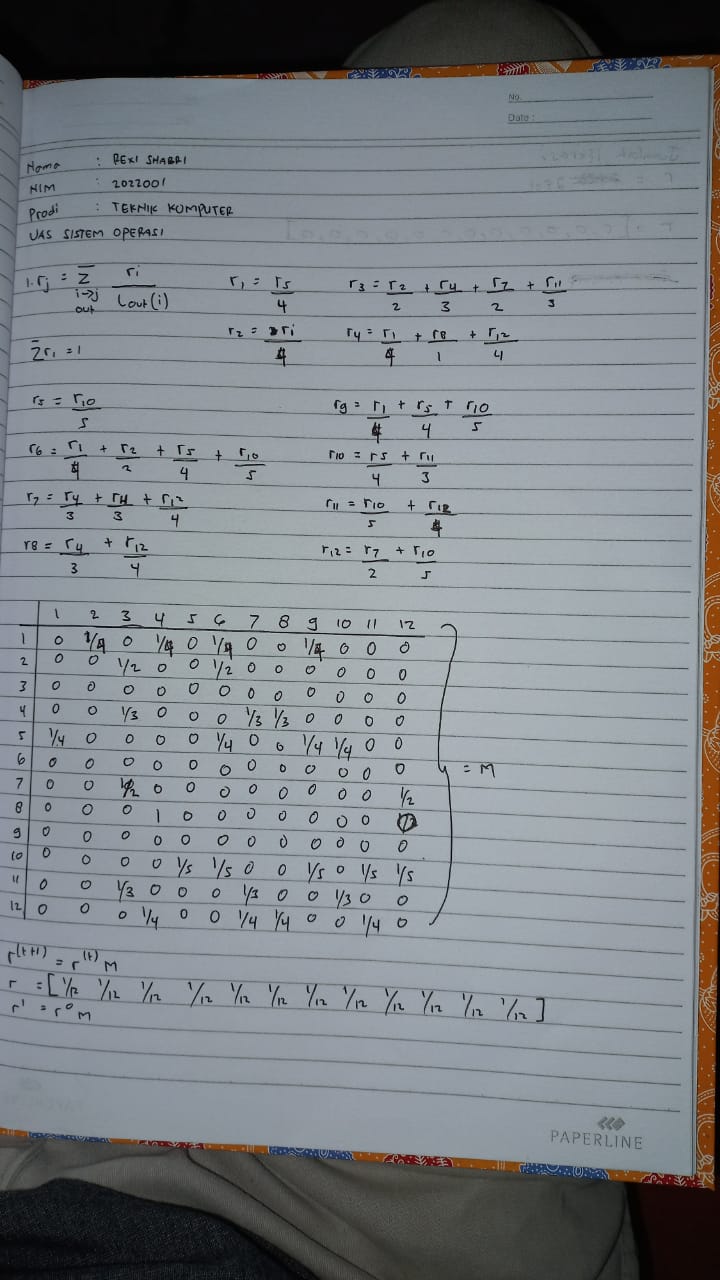 No.
Date :
Nama : REXI SHABRI
NIM : 2022001
Prodi : TEKNIK KOMPUTER
UAS SISTEM OPERASI
1. rj = Σ i→j out ri / Lout(i)
r1 = r5/4
r3 = r2/2 + r4/3 + r7/2 + r11/3
Σr1 = 1
r2 = ri/4
r4 = r1/4 + r8/1 + r12/4
r5 = r10/5
r9 = r1/4 + r5/4 + r10/5
r6 = r1/4 + r2/2 + r5/4 + r10/5
r10 = r5/4 + r11/3
r7 = r4/3 + r11/3 + r12/4
r11 = r10/5 + r12/4
r8 = r4/3 + r12/4
r12 = r7/2 + r10/5
1 2 3 4 5 6 7 8 9 10 11 12
1 0 1/4 0 1/4 0 1/4 0 0 1/4 0 0 0
2 0 0 1/2 0 0 1/2 0 0 0 0 0 0
3 0 0 0 0 0 0 0 0 0 0 0 0
4 0 0 1/3 0 0 0 1/3 1/3 0 0 0 0
5 1/4 0 0 0 0 1/4 0 0 1/4 1/4 0 0
6 0 0 0 0 0 0 0 0 0 0 0 0
7 0 0 1/2 0 0 0 0 0 0 0 0 1/2
= M
8 0 0 0 1 0 0 0 0 0 0 0 0
9 0 0 0 0 0 0 0 0 0 0 0 0
10 0 0 0 0 1/5 1/5 0 0 1/5 0 1/5 1/5
11 0 0 1/3 0 0 0 1/3 0 0 1/3 0 0
12 0 0 0 1/4 0 0 1/4 1/4 0 0 1/4 0
r(t+1) = r(t) M
r = [1/12 1/12 1/12 1/12 1/12 1/12 1/12 1/12 1/12 1/12 1/12 1/12]
r' = r° M
PAPERLINE